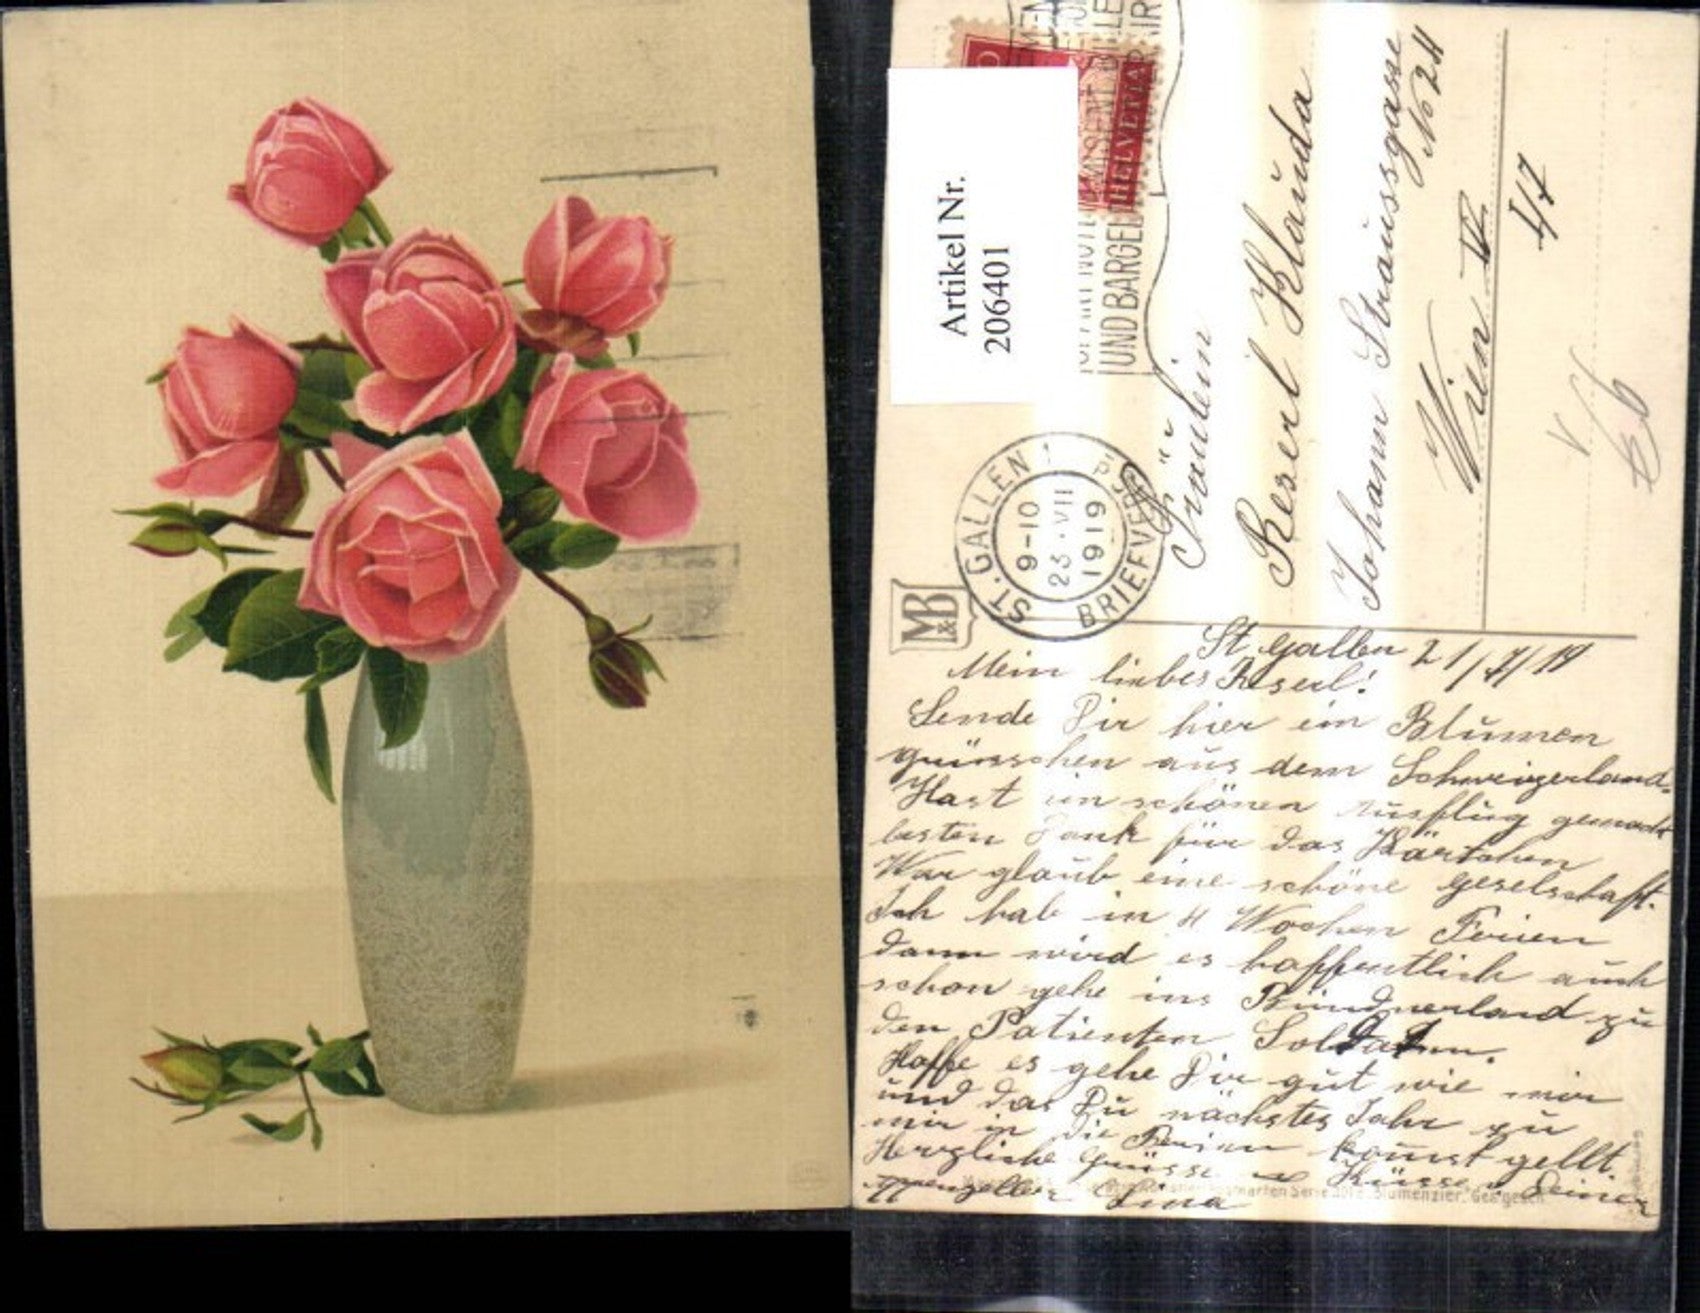 Artikel Nr.
206401
HELVETIA
UND BARGEL
ST. GALLEN
9-10
23.VII
1919
BRIEFVERS
M&B
Fräulein
Reserl Klauda
Johann Straussgasse
No 24
Wien IV.
4/7
St. Gallen 21/7/19
Mein liebes Reserl!
Sende Dir hier ein Blumen
grüsschen aus dem Schweizerland.
Hast ein schönen Ausflug gemacht
besten Dank für das Kärtchen
War glaub eine schöne geselschaft.
Ich hab in 4 Wochen Ferien
dann wird es hoffentlich auch
schon gehe ins Bündnerland zu
den Patienten Soldaten.
Hoffe es gehe Dir gut wie mir
und das Du nächstes Jahr zu
mir in die Ferien komst gellt.
Herzliche Grüsse u Küsse Deine
Appenzeller Lina
Serie "Blumenzier." Ges. gesch.